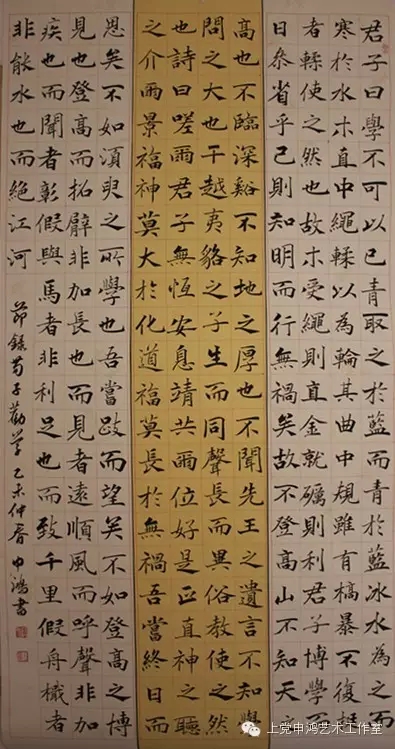 君子曰學不可以已青取之於藍而青於藍冰水為之而
寒於水木直中繩輮以為輪其曲中規雖有槁暴不復挺
者輮使之然也故木受繩則直金就礪則利君子博學而
日叅省乎己則知明而行無禍矣故不登高山不知天之
高也不臨深谿不知地之厚也不聞先王之遺言不知學
問之大也干越夷貉之子生而同聲長而異俗教使之然
也詩曰嗟爾君子無恆安息靖共爾位好是正直神之聽
之介爾景福神莫大於化道福莫長於無禍吾嘗終日而
思矣不如須臾之所學也吾嘗跂而望矣不如登高之博
見也登高而招臂非加長也而見者遠順風而呼聲非加
疾也而聞者彰假輿馬者非利足也而致千里假舟檝者
非能水也而絕江河
節錄荀子勸學乙未仲春申鴻書
上党申鸿艺术工作室